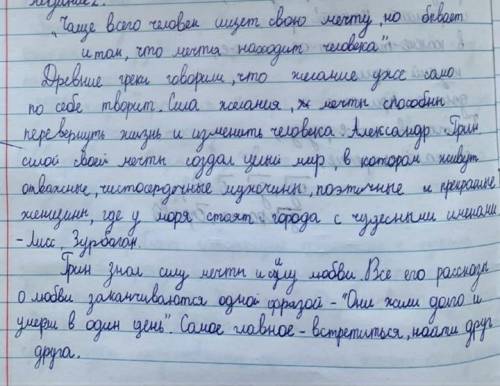 Задание 2.
„Чаще всего человек ищет свою мечту, но бывает
и так, что мечта находит человека“
Древние греки говорили, что желание уже само
по себе творит. Сила желания, ж мечты способны
перевернуть жизнь и изменить человека. Александр Грин
силой своей мечты создал целый мир, в котором живут
отважные, чистосердечные мужчины, поэтичные и прекрасные
женщины, где у моря стоят города с чудесными именами
- Лисс, Зурбаган.
Грин знал силу мечты и силу любви. Все его рассказы
о любви заканчиваются одной фразой - "Они жили долго и
умерли в один день". Самое главное - встретиться, найти друг
друга.